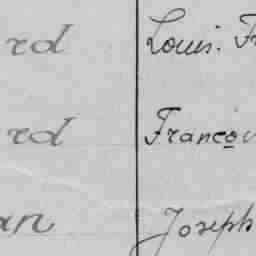 rd Louis. Fr
rd Françou
an Joseph